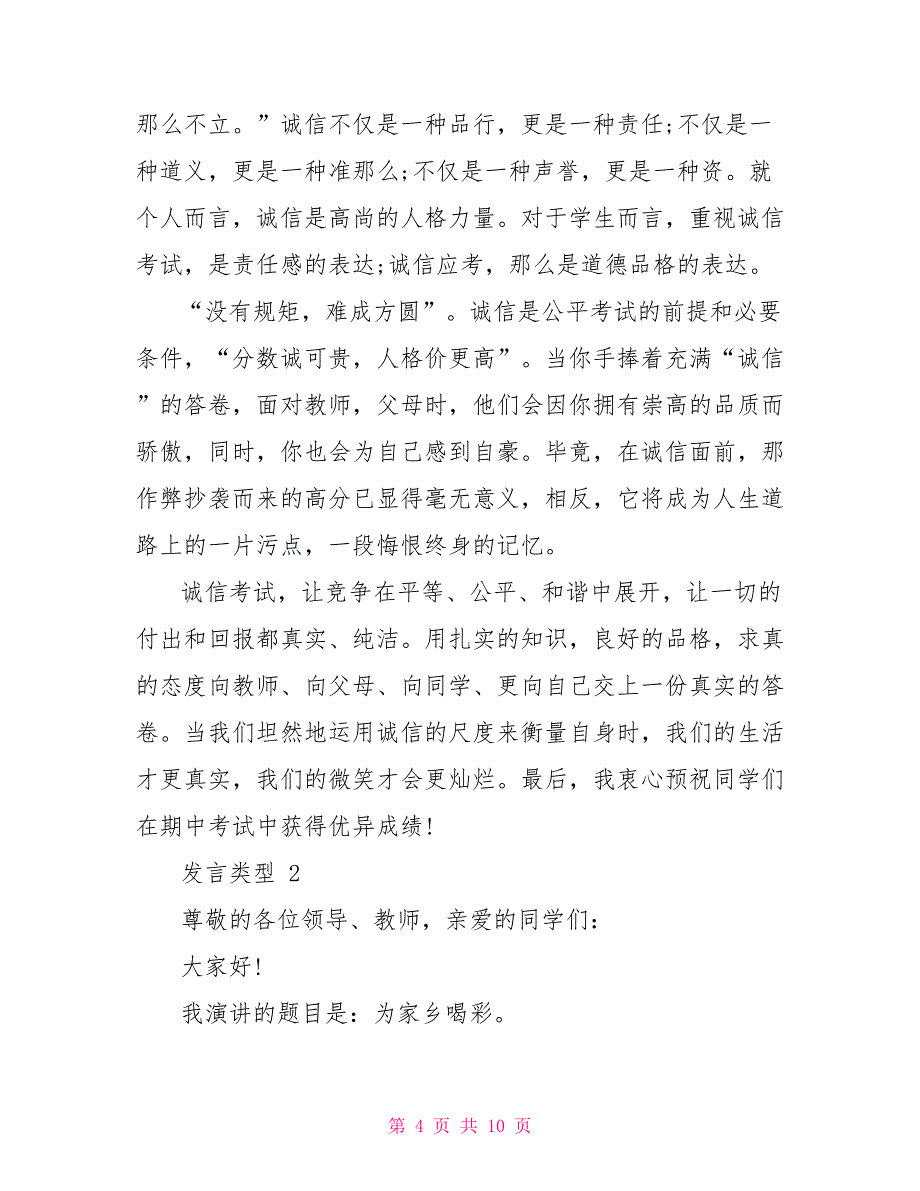 那么不立。”诚信不仅是一种品行，更是一种责任;不仅是一
种道义，更是一种准那么;不仅是一种声誉，更是一种资。就
个人而言，诚信是高尚的人格力量。对于学生而言，重视诚信
考试，是责任感的表达;诚信应考，那么是道德品格的表达。
“没有规矩，难成方圆”。诚信是公平考试的前提和必要
条件，“分数诚可贵，人格价更高”。当你手捧着充满“诚信
”的答卷，面对教师，父母时，他们会因你拥有崇高的品质而
骄傲，同时，你也会为自己感到自豪。毕竟，在诚信面前，那
作弊抄袭而来的高分已显得毫无意义，相反，它将成为人生道
路上的一片污点，一段悔恨终身的记忆。
诚信考试，让竞争在平等、公平、和谐中展开，让一切的
付出和回报都真实、纯洁。用扎实的知识，良好的品格，求真
的态度向教师、向父母、向同学、更向自己交上一份真实的答
卷。当我们坦然地运用诚信的尺度来衡量自身时，我们的生活
才更真实，我们的微笑才会更灿烂。最后，我衷心预祝同学们
在期中考试中获得优异成绩!
发言类型 2
尊敬的各位领导、教师，亲爱的同学们：
大家好!
我演讲的题目是：为家乡喝彩。
第 4 页 共 10 页